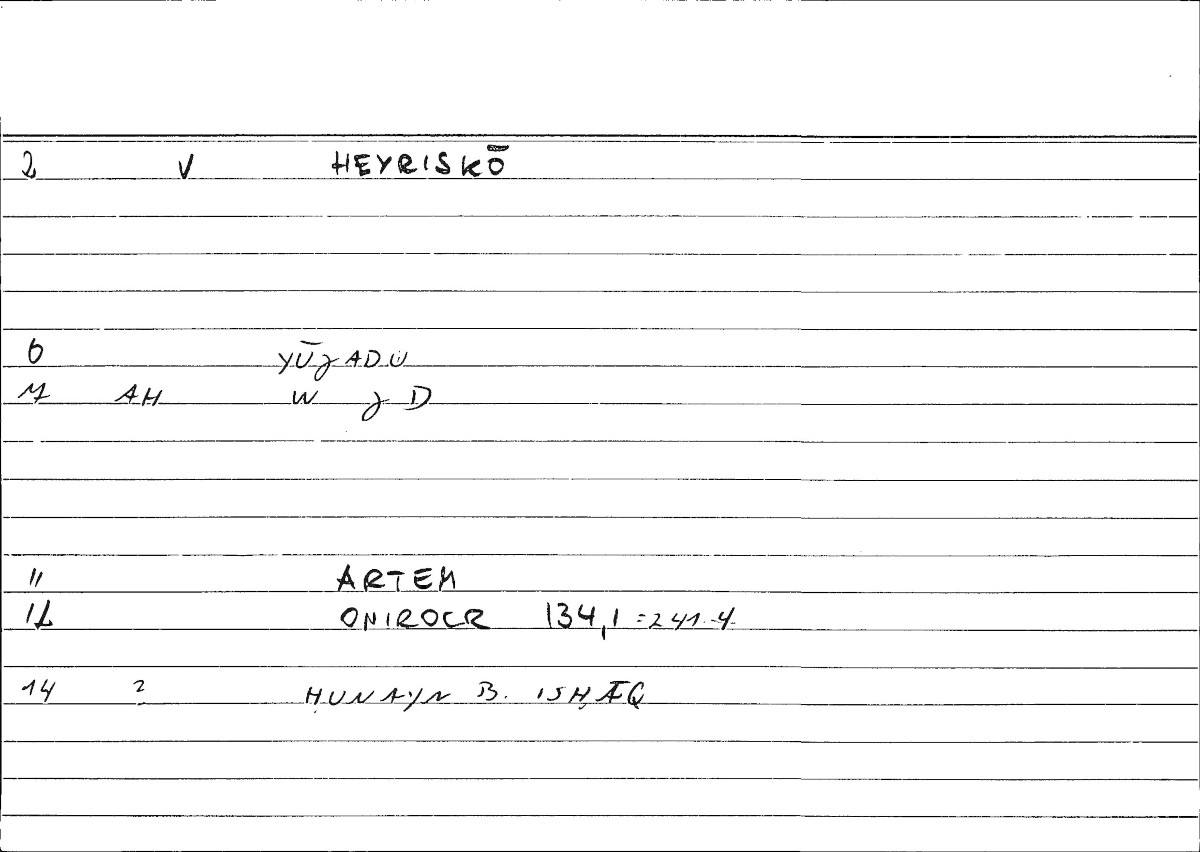 2 V HEYRISKŌ
6 YŪǧADU
M AH W ǧ D
11 ARTEM
12 ONIROCR 134,1 = 241.4
14 2 ḤUNAYN B. ISḤĀQ